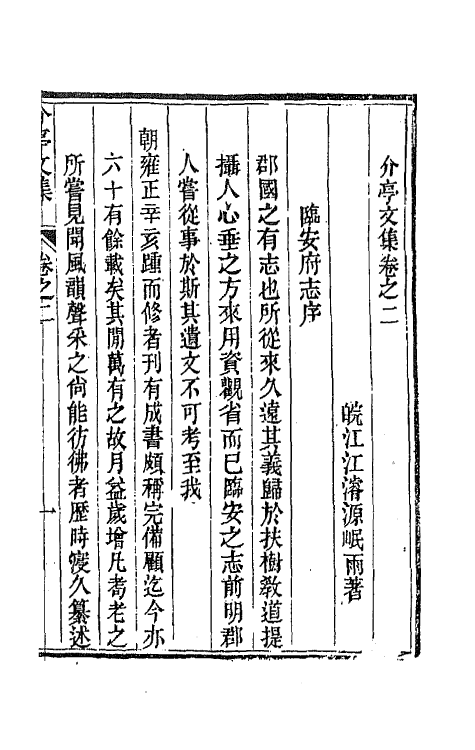 介亭文集卷之二
皖江江濬源岷雨著
臨安府志序
郡國之有志也所從來久遠其義歸於扶樹敎道提
攝人心垂之方來用資觀省而已臨安之志前明郡
人嘗從事於斯其遺文不可考至我
朝雍正辛亥踵而修者刊有成書頗稱完備顧迄今亦
六十有餘載矣其閒萬有之故月益歲增凡耆老之
所嘗見聞風韻聲采之尙能彷彿者歷時寖久纂述
介亭文集
卷之二
一